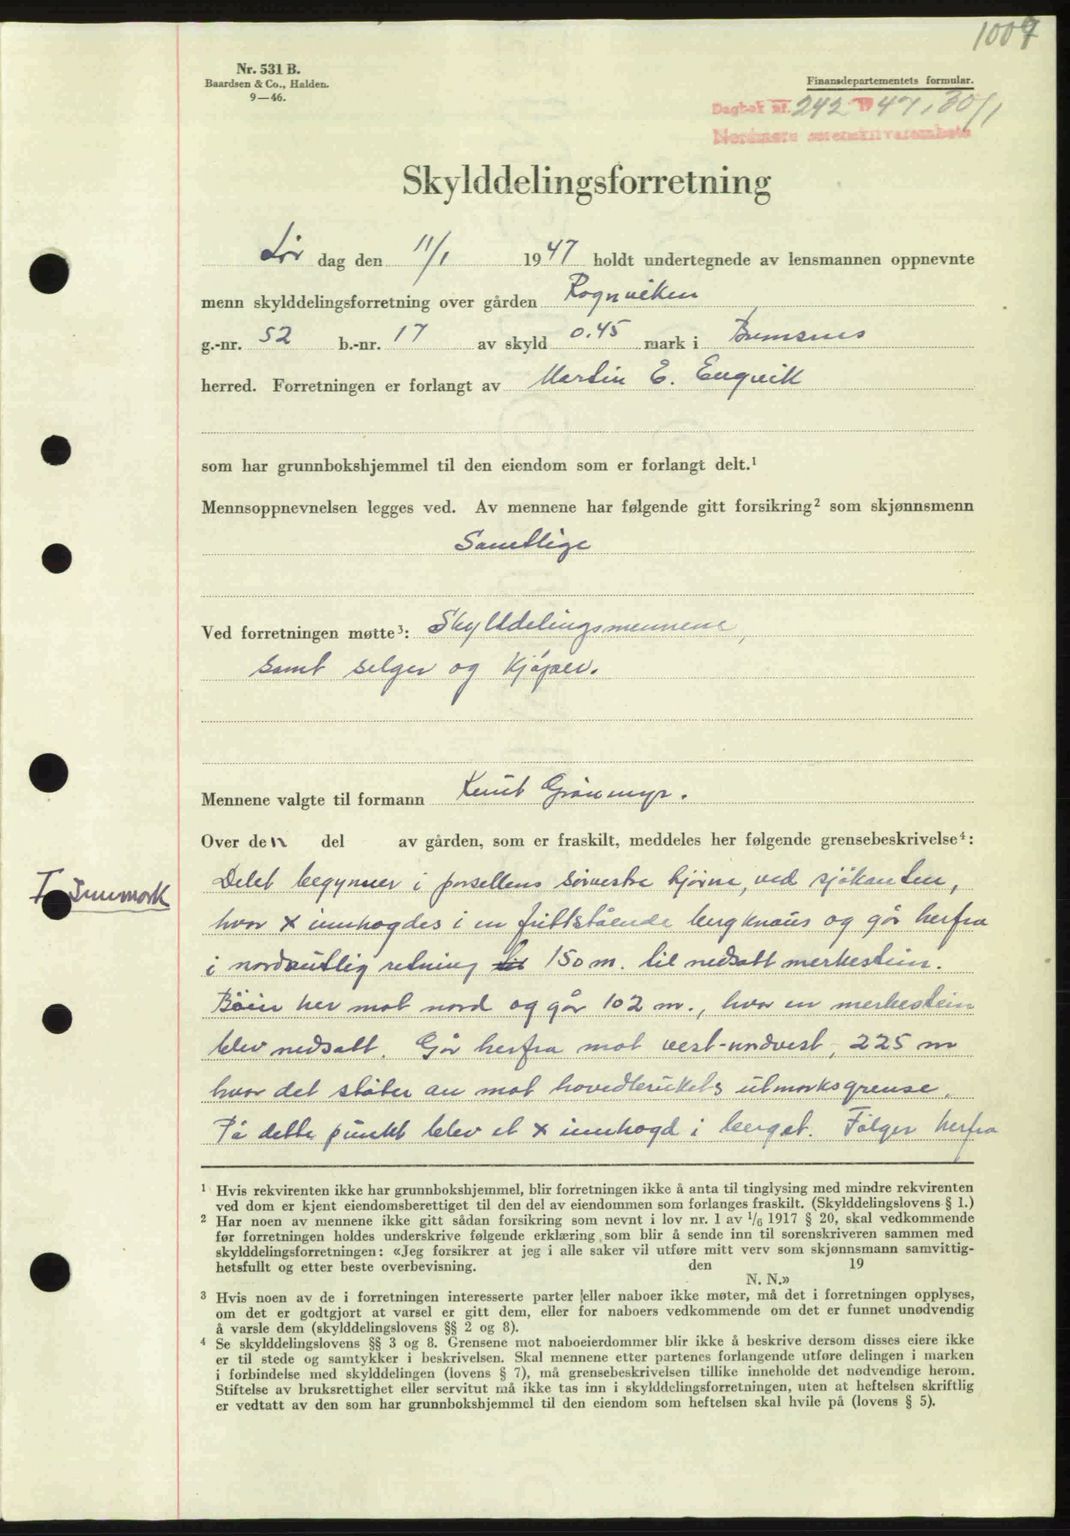 1007
Nr. 531 B.
Baardsen & Co., Halden.
9—46.
Finansdepartementets formular.
Dagbok nr. 242 19 47, 30/1
Nordmøre sorenskriverembete
Skylddelingsforretning
Lør dag den 11/1 1947 holdt undertegnede av lensmannen oppnevnte
menn skylddelingsforretning over gården Rognviken
g.-nr. 52 b.-nr. 17 av skyld 0.45 mark i Bremsnes
herred. Forretningen er forlangt av Martin E. Engvik
som har grunnbokshjemmel til den eiendom som er forlangt delt.¹
Mennsoppnevnelsen legges ved. Av mennene har følgende gitt forsikring² som skjønnsmenn
Samtlige
Ved forretningen møtte³: Skylddelingsmennene,
samt selger og kjøper.
Mennene valgte til formann Knut Grønmyr.
Over den del av gården, som er fraskilt, meddeles her følgende grensebeskrivelse⁴:
I Innmark
Delet begynner i parsellens sørvestre hjørne, ved sjøkanten,
hvor x innhogdes i en frittstående bergknaus og går herfra
i nordøstlig retning 150 m. til nedsatt merkestein.
Bøier her mot nord og går 102 m., hvor en merkestein
blev nedsatt. Går herfra mot vest-nordvest, 225 m
hvor det støter an mot hovedbrukets utmarksgrense.
På dette punkt blev et x innhogd i berget. Følger herfra
¹ Hvis rekvirenten ikke har grunnbokshjemmel, blir forretningen ikke å anta til tinglysing med mindre rekvirenten
ved dom er kjent eiendomsberettiget til den del av eiendommen som forlanges fraskilt. (Skylddelingslovens § 1.)
² Har noen av mennene ikke gitt sådan forsikring som nevnt i lov nr. 1 av 1/6 1917 § 20, skal vedkommende
før forretningen holdes underskrive følgende erklæring som blir å sende inn til sorenskriveren sammen med
skylddelingsforretningen: «Jeg forsikrer at jeg i alle saker vil utføre mitt verv som skjønnsmann samvittig-
hetsfullt og etter beste overbevisning. den 19
N. N.»
³ Hvis noen av de i forretningen interesserte parter eller naboer ikke møter, må det i forretningen opplyses,
om det er godtgjort at varsel er gitt dem, eller for naboers vedkommende om det er funnet unødvendig
å varsle dem (skylddelingslovens §§ 2 og 8).
⁴ Se skylddelingslovens §§ 3 og 8. Grensene mot naboeierdommer blir ikke å beskrive dersom disses eiere ikke
er til stede og samtykker i beskrivelsen. Skal mennene etter partenes forlangende utføre delingen i marken
i forbindelse med skylddelingen (lovens § 7), må grensebeskrivelsen tillike inneholde det nødvendige herom.
Stiftelse av bruksrettighet eller servitut må ikke tas inn i skylddelingsforretningen, uten at heftelsen skriftlig
er vedtatt av den som har grunnbokshjemmel til den eiendom som heftelsen skal hvile på (lovens § 5).